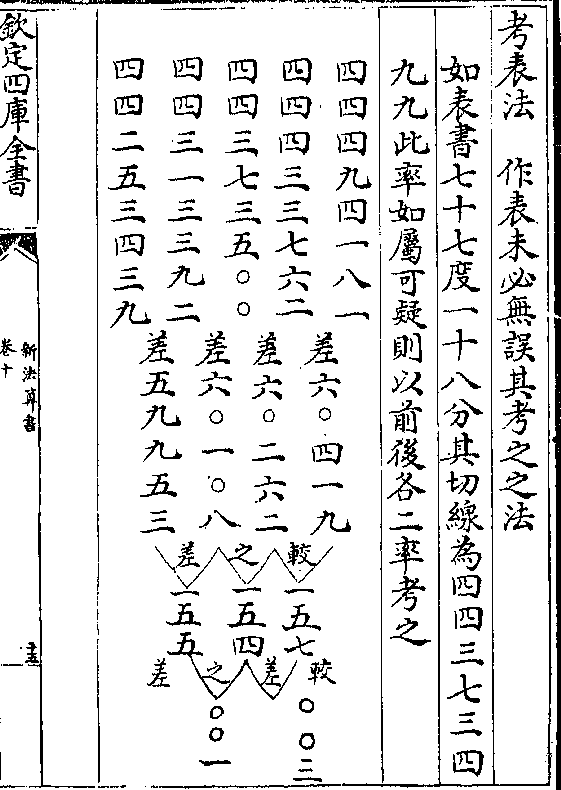 考表法　作表未必無誤其考之之法
如表書七十七度一十八分其切線為四四三七三四
九九此率如屬可疑則以前後各二率考之
四四四九四一八一
四四四三三七六二
四四三七三五〇〇
四四三一三三九二
四四二五三四三九
差六〇四一九
差六〇二六二
差六〇一〇八
差五九九五三
較之差
一五七
一五四
一五五
較差之差
〇〇三
〇〇一
欽定四庫全書
新法算書
卷十